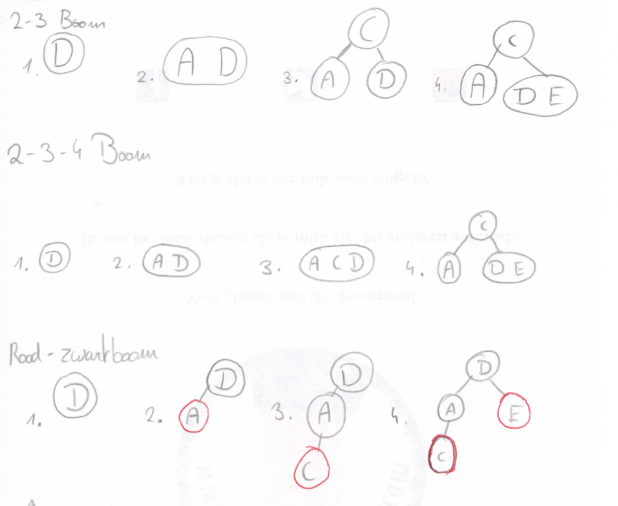 2-3 Boom
1. D 2. A D 3. C 4. C
A D A D E
2-3-4 Boom
1. D 2. A D 3. A C D 4. C
A D E
Rood-zwartboom
1. D 2. D 3. D 4. D
A A A E
C C